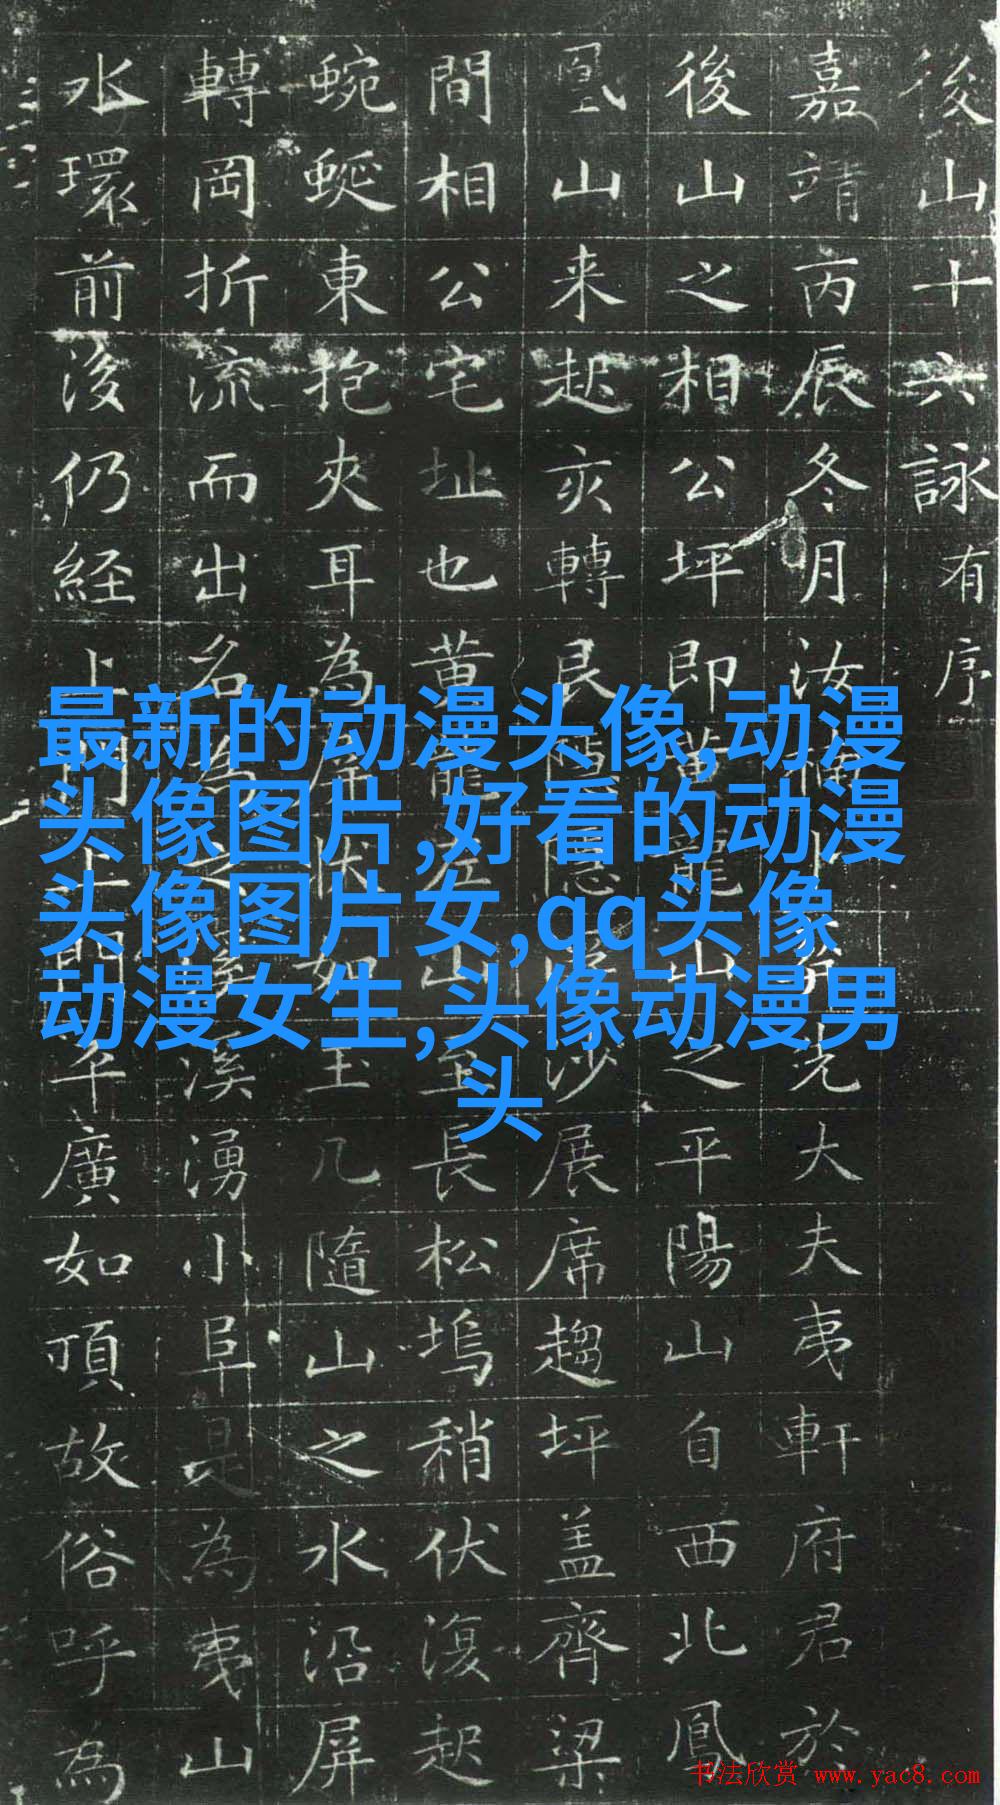 後山十六詠有序
嘉靖丙辰冬月汝先大夫夷軒府君於
後山之相公坪即黄龍山之平陽山自西北鳳
凰山来起亥轉艮隱隱沙展席趨坪盖齊梁
間相公宅址也黄龍左山至長松塢稍伏復起
蜿蜒東抱夾耳為屏如玉几隨山之水沿屏
轉岡折流而出名為溪湧小阜是為夷山
水環前後仍経上門上門平廣如頂故俗呼為
最新的动漫头像,动漫
头像图片,好看的动漫
头像图片女,qq头像
动漫女生,头像动漫男
头
书法欣赏 www.yac8.com